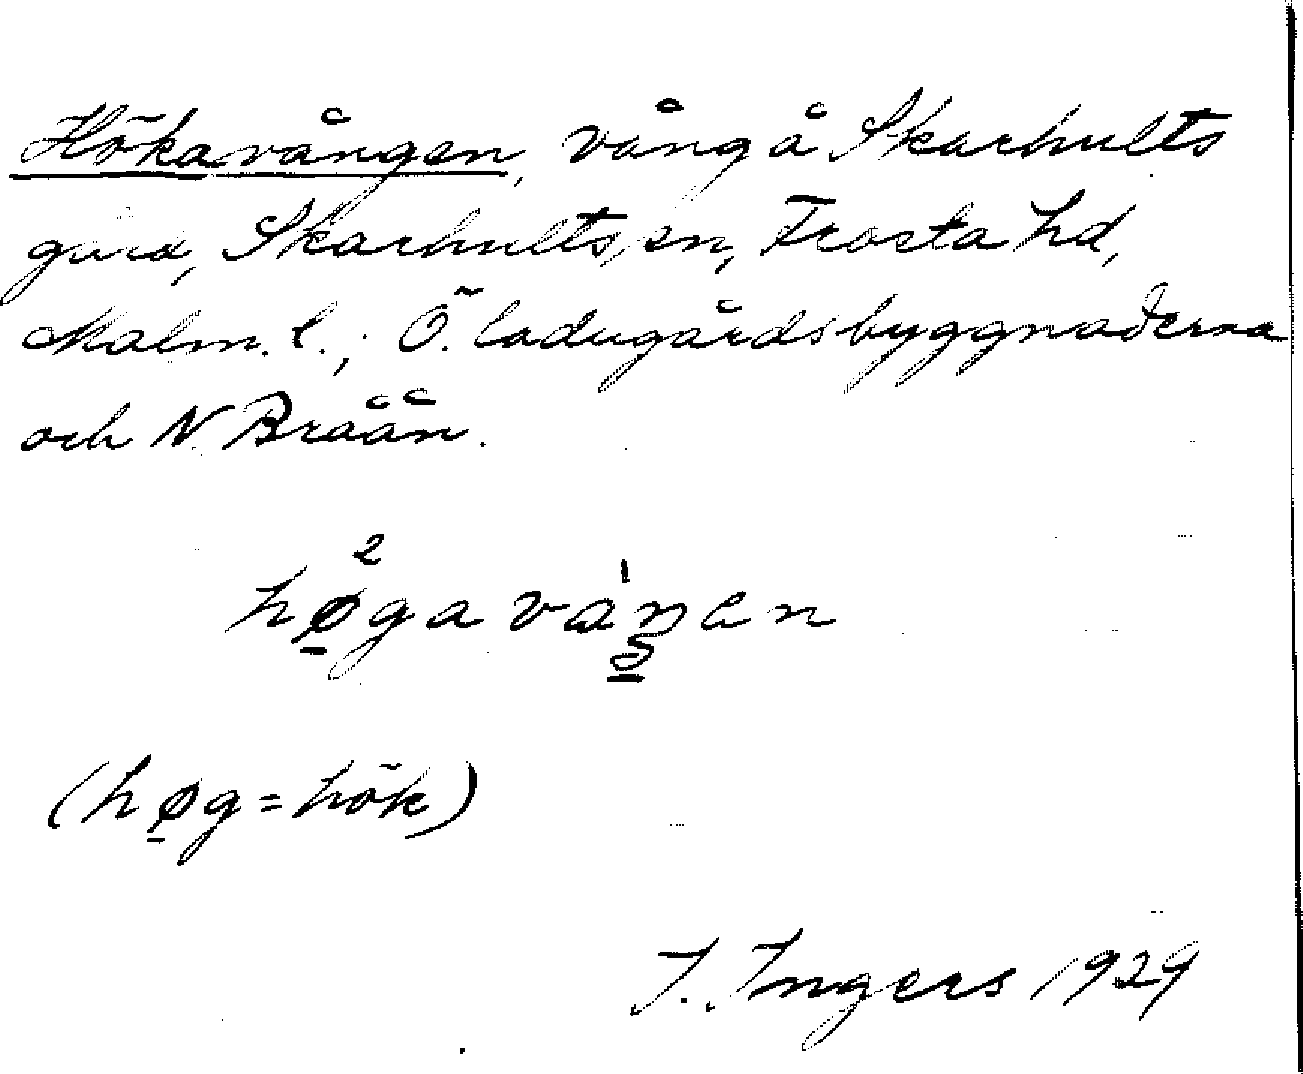 Hökavången, vång å Skarhults
gård, Skarhults sn, Frosta hd,
Malm. l.; Ö. ladugårdsbyggnaderna
och N. Bråån.
hø̱²gavaˈŋen
(hø̱g = hök)
I. Ingers 1929